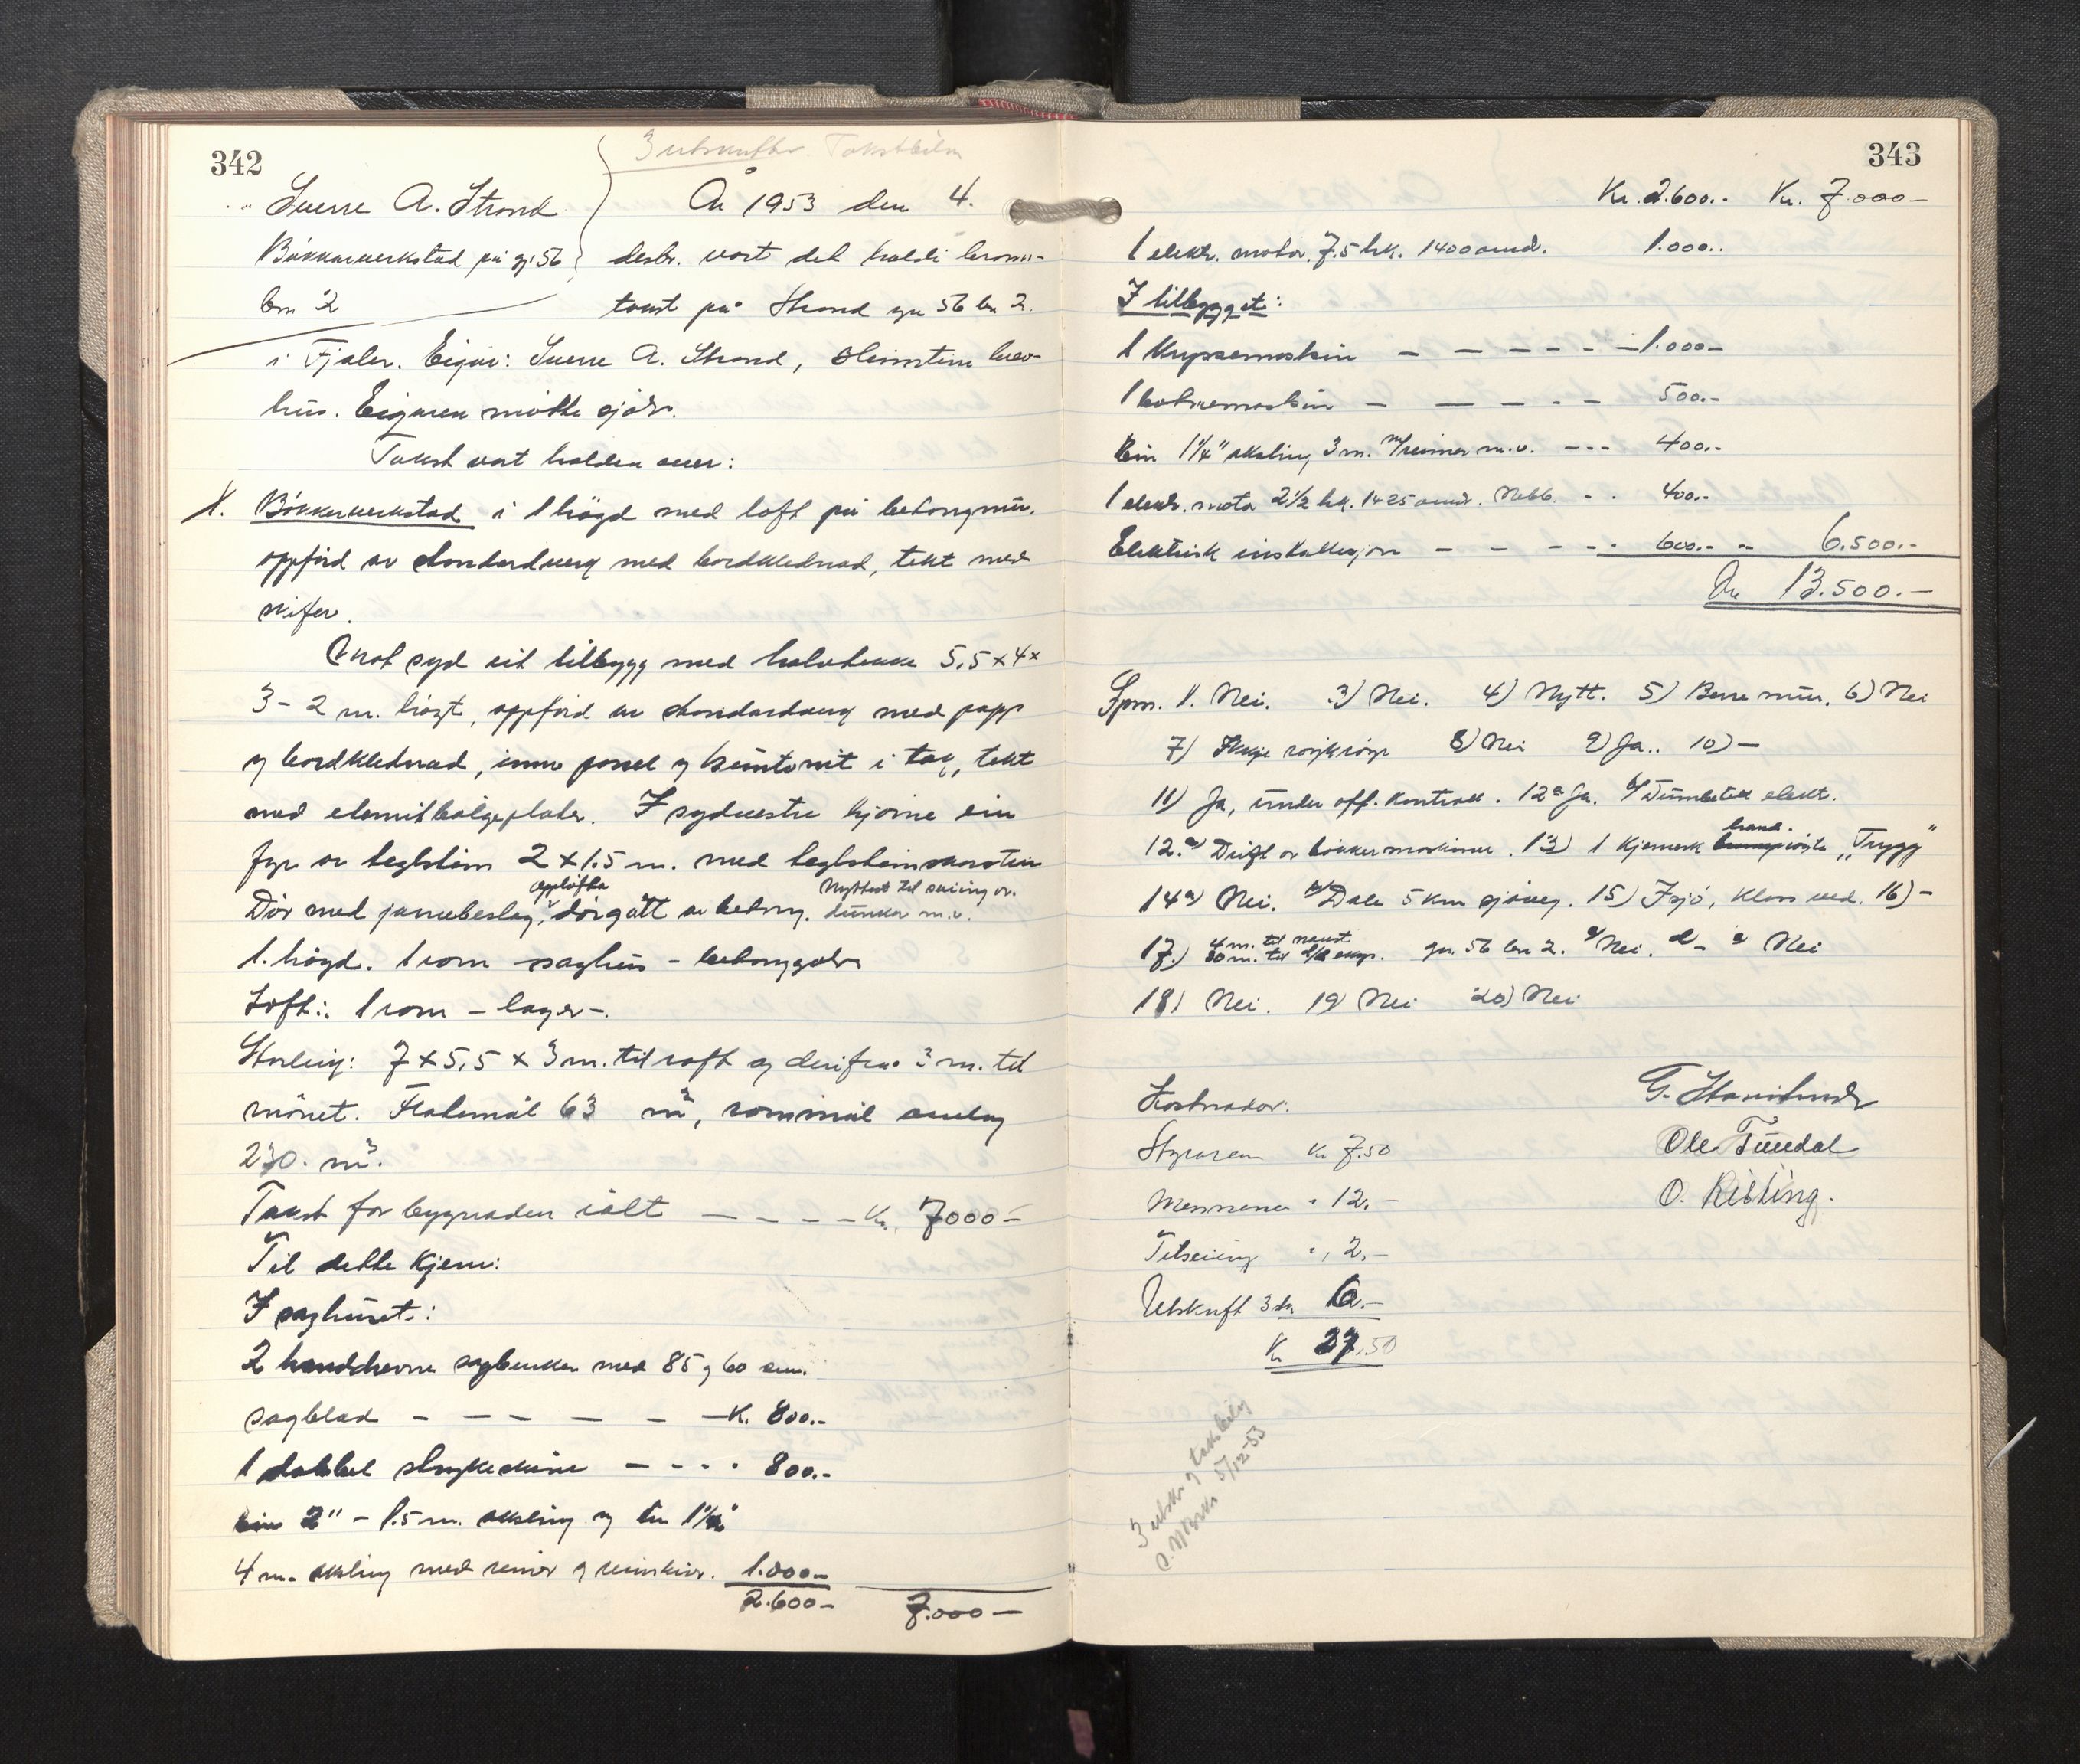 342
3 utskrifter. Takstbilm
Sverre A. Strand
Bökkarverkstad på g. 56
bn 2
År 1953 den 4.
desbr. vart det halde brann-
takst på Strand gn 56 bn 2.
i Fjaler. Eigar: Sverre A. Strand, Steinstein brev-
hus. Eigaren møtte sjølv.
Takst vart halden over:
1. Bökkerverkstad i 1 högd med loft på betongmur.
oppförd av standardverk med bordklednad, tekt med
skifer.
Imot syd eit tilbygg med halvtekke 5,5 x 4 x
3 - 2 m. högt, oppförd av standardverk med papp
og bordklednad, innv. panel og huntonit i tak, tekt
med eternitbölgeplater. I sydvestre hjörne ein
fyr av teglstein 2 x 1.5 m. med teglsteinskorstein
Dör med jarnbeslag, opplöfta dörgått av betong. Nyttast til sviing av. dunkar m.v.
1. högd. 1 rom saghus - betonggolv
Loft: 1 rom - lager -.
Storleik: 7 x 5,5 x 3 m. til raft og derifrå 3 m. til
mönet. Flatemål 63 m², rommål omlag
230. m³.
Takst for bygnaden ialt - - - - Kr. 7000 -
Til dette kjem:
I saghuset:
2 handdrevne sagbenker med 85 og 60 cm.
sagblad - - - - - - K. 800.-
1 dobbel strykeskive - - - - 800.-
Ein 2" - 1.5 m. aksling og ein 1¼"
4 m. aksling med reimer og reimskiver. 1.000 -
2.600 - 7.000 -
343
Kr. 2.600.- Kr. 7.000 -
1 elektr. motor. 7.5 hk. 1400 omdr. 1.000..
I tilbygget:
1 Kryssemaskin - - - - - - 1.000 -
1 botnemaskin - - - - - 500.-
Ein 1¼" aksling 3 m. m/reimer m.v. - - - 400.-
1 elektr. motor 2½ hk. 1425 omdr. Nebb. - . 400.-
Elektrisk installasjon - - - - - 600.- " 6.500.-
Kr 13.500.-
Spm. 1. Nei. 3) Nei. 4) Nytt. 5) Berre mur. 6) Nei
7) Ikkje röykröyr 8) Nei 9) Ja.. 10) -
11) Ja, under off. kontroll. 12a Ja. elekt.
12.c) Drift av bökkermaskiner. 13) 1 Kjemisk hand- "Trygg"
14 a) Nei. b) Dale 5 km sjöveg. 15) I sjö, kloss ved. 16) -
17.) 4 m. til naust
30 m. til d/s eksp. gn. 56 bn 2. c) Nei. d - e Nei
18) Nei. 19) Nei 20) Nei
Kostnader:
Styraren Kr 7.50
Mennene " 12.-
Tilseiing " 2.-
Utskrift 3 st. 6.-
Kr 27.50
Ole Tuedal
O. Risting.
3 utskr og takstbilag
5/12-53